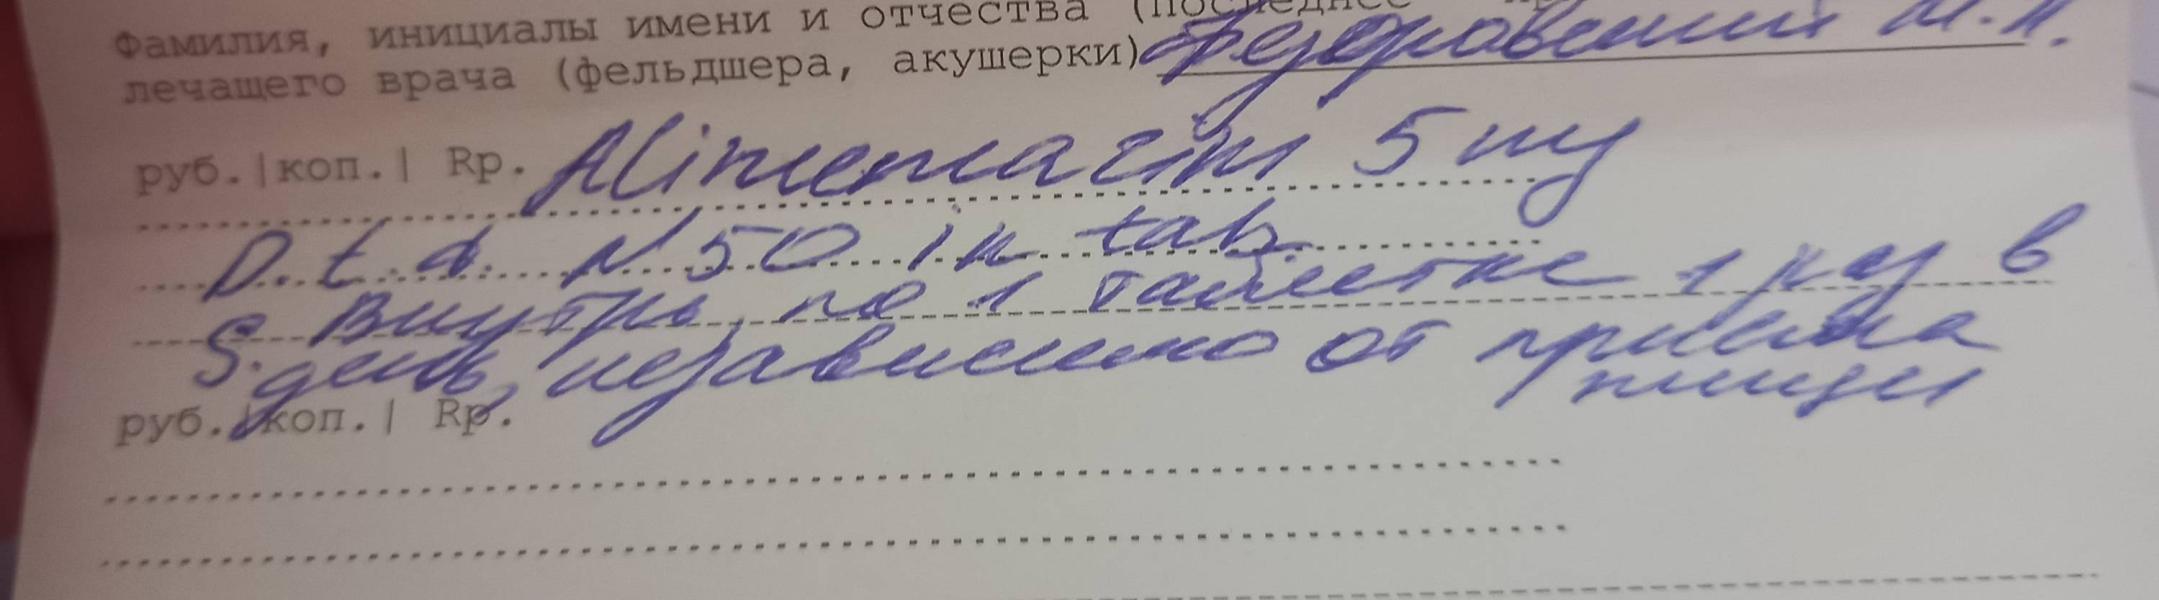 Фамилия, инициалы имени и отчества (последнее
лечащего врача (фельдшера, акушерки) М.И.
руб.|коп.| Rp. Alimemazini 5 mg
D. t. d. N 50 in tab.
S. Внутрь, по 1 таблетке 1 раз в
день, независимо от приема
пищи
руб.|коп.| Rp.